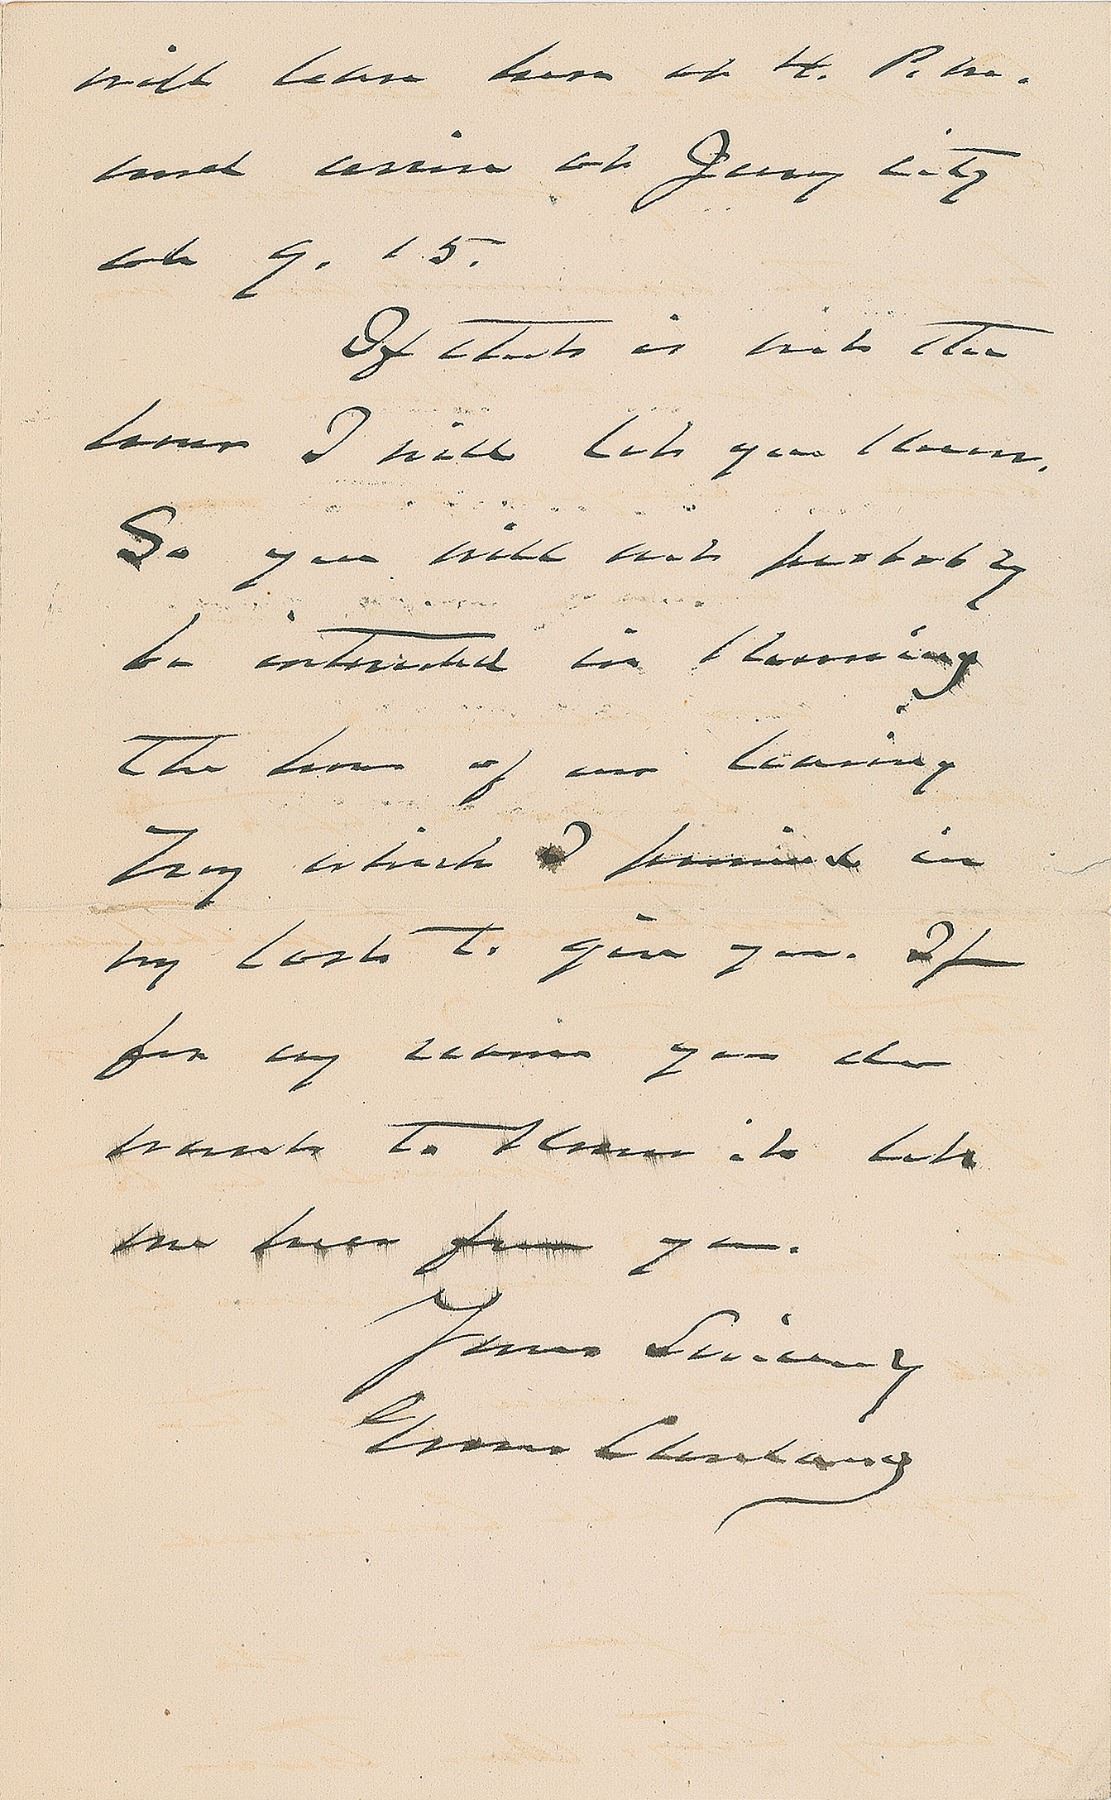 will leave here at 4. P.m.
and arrive at Jersey City
at 9. 15.
If that is not the
hour I will let you know.
So you will not probably
be interested in knowing
the hour of our leaving
Troy which I promised in
my last to give you. If
for any reason you do
want to know it let
me hear from you.
Yours Sincerely
Grover Cleveland